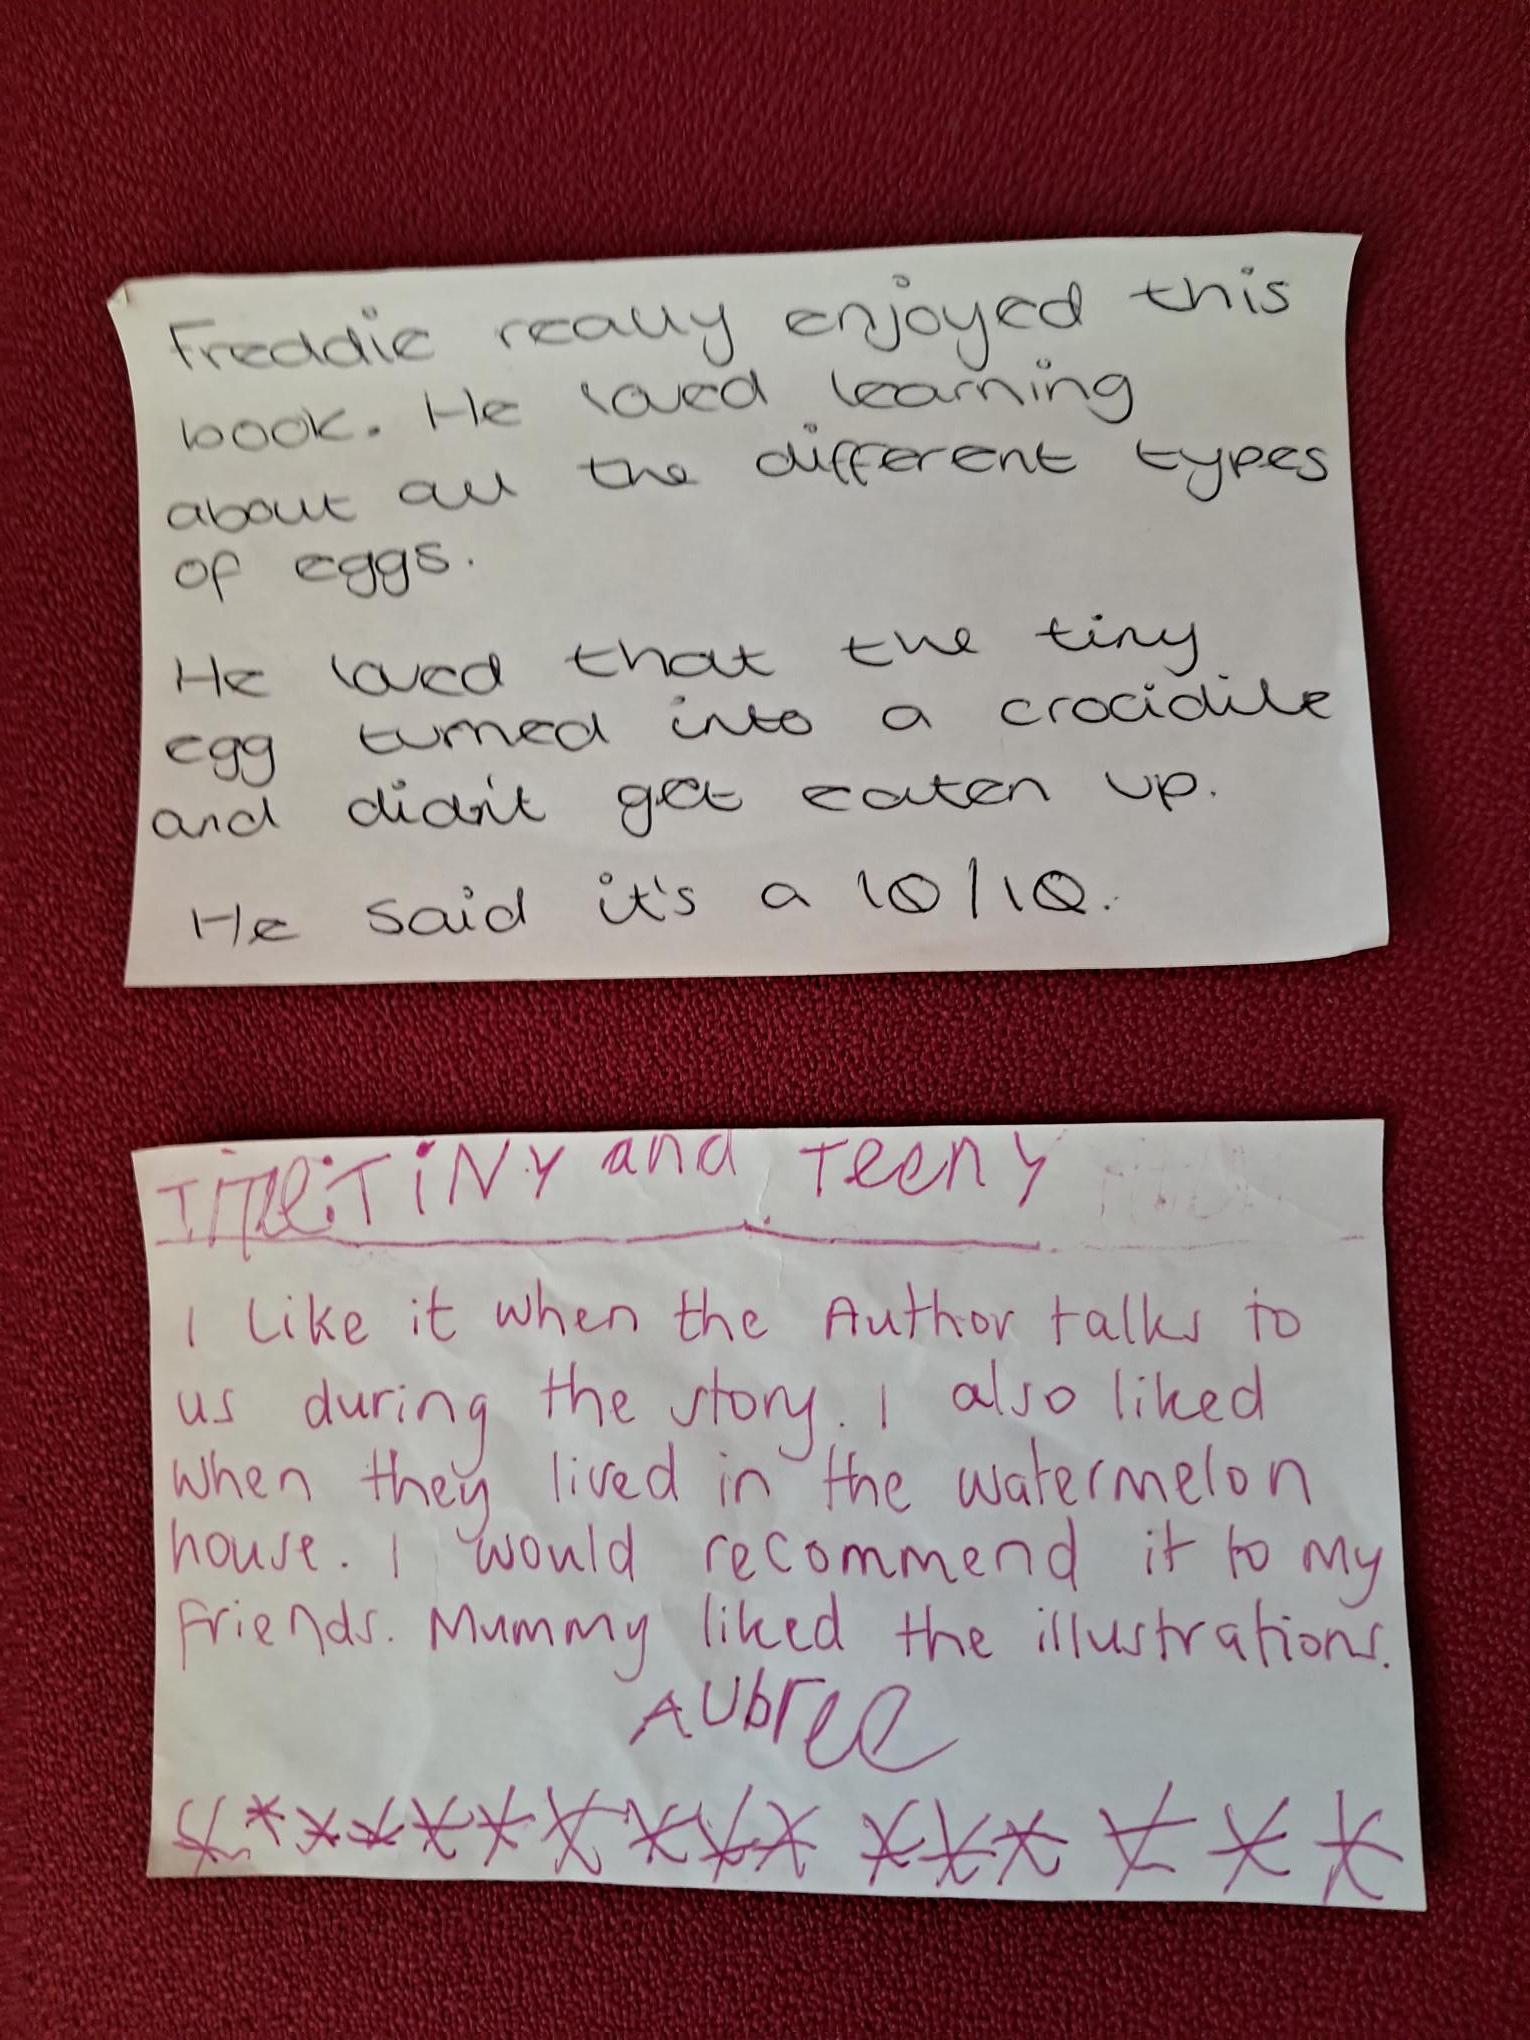 Freddie really enjoyed this
book. He loved learning
about all the different types
of eggs.
He loved that the tiny
egg turned into a crocidile
and didn't get eaten up.
He said it's a 10/10.
Title: TiNy and Teeny
I like it when the Author talks to
us during the story. I also liked
when they lived in the watermelon
house. I would recommend it to my
friends. Mummy liked the illustrations.
AUbree